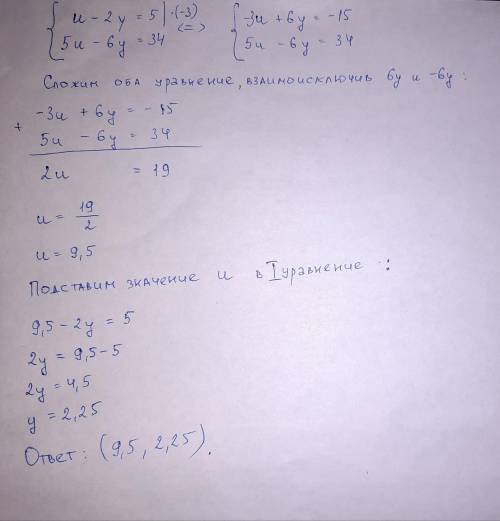 { u - 2y = 5 | ·(-3) <=> { -3u + 6y = -15
{ 5u - 6y = 34 { 5u - 6y = 34
Сложим оба уравнение, взаимоисключив 6y и -6y:
+ -3u + 6y = -15
5u - 6y = 34
2u = 19
u = 19/2
u = 9,5
Подставим значение u в I уравнение:
9,5 - 2y = 5
2y = 9,5 - 5
2y = 4,5
y = 2,25
Ответ: (9,5, 2,25).